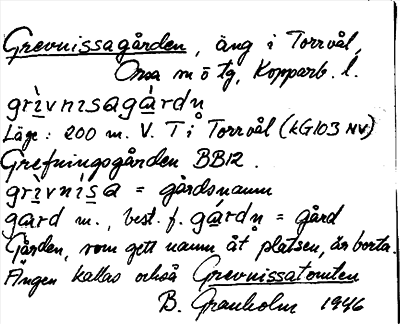 Grevnissagården, äng i Torrvål,
Orsa sn ö tg, Kopparb. l.
grìvnısagàrdn
Läge: 200 m. V. T i Torrvål (kG103 NV)
Grefningsgården BB12.
grìvnísa = gårdsnamn
gard m., best. f. gárdn = gård
Gården, som gett namn åt platsen, är borta.
Ängen kallas också Grevnissatomten
B. Granholm 1946